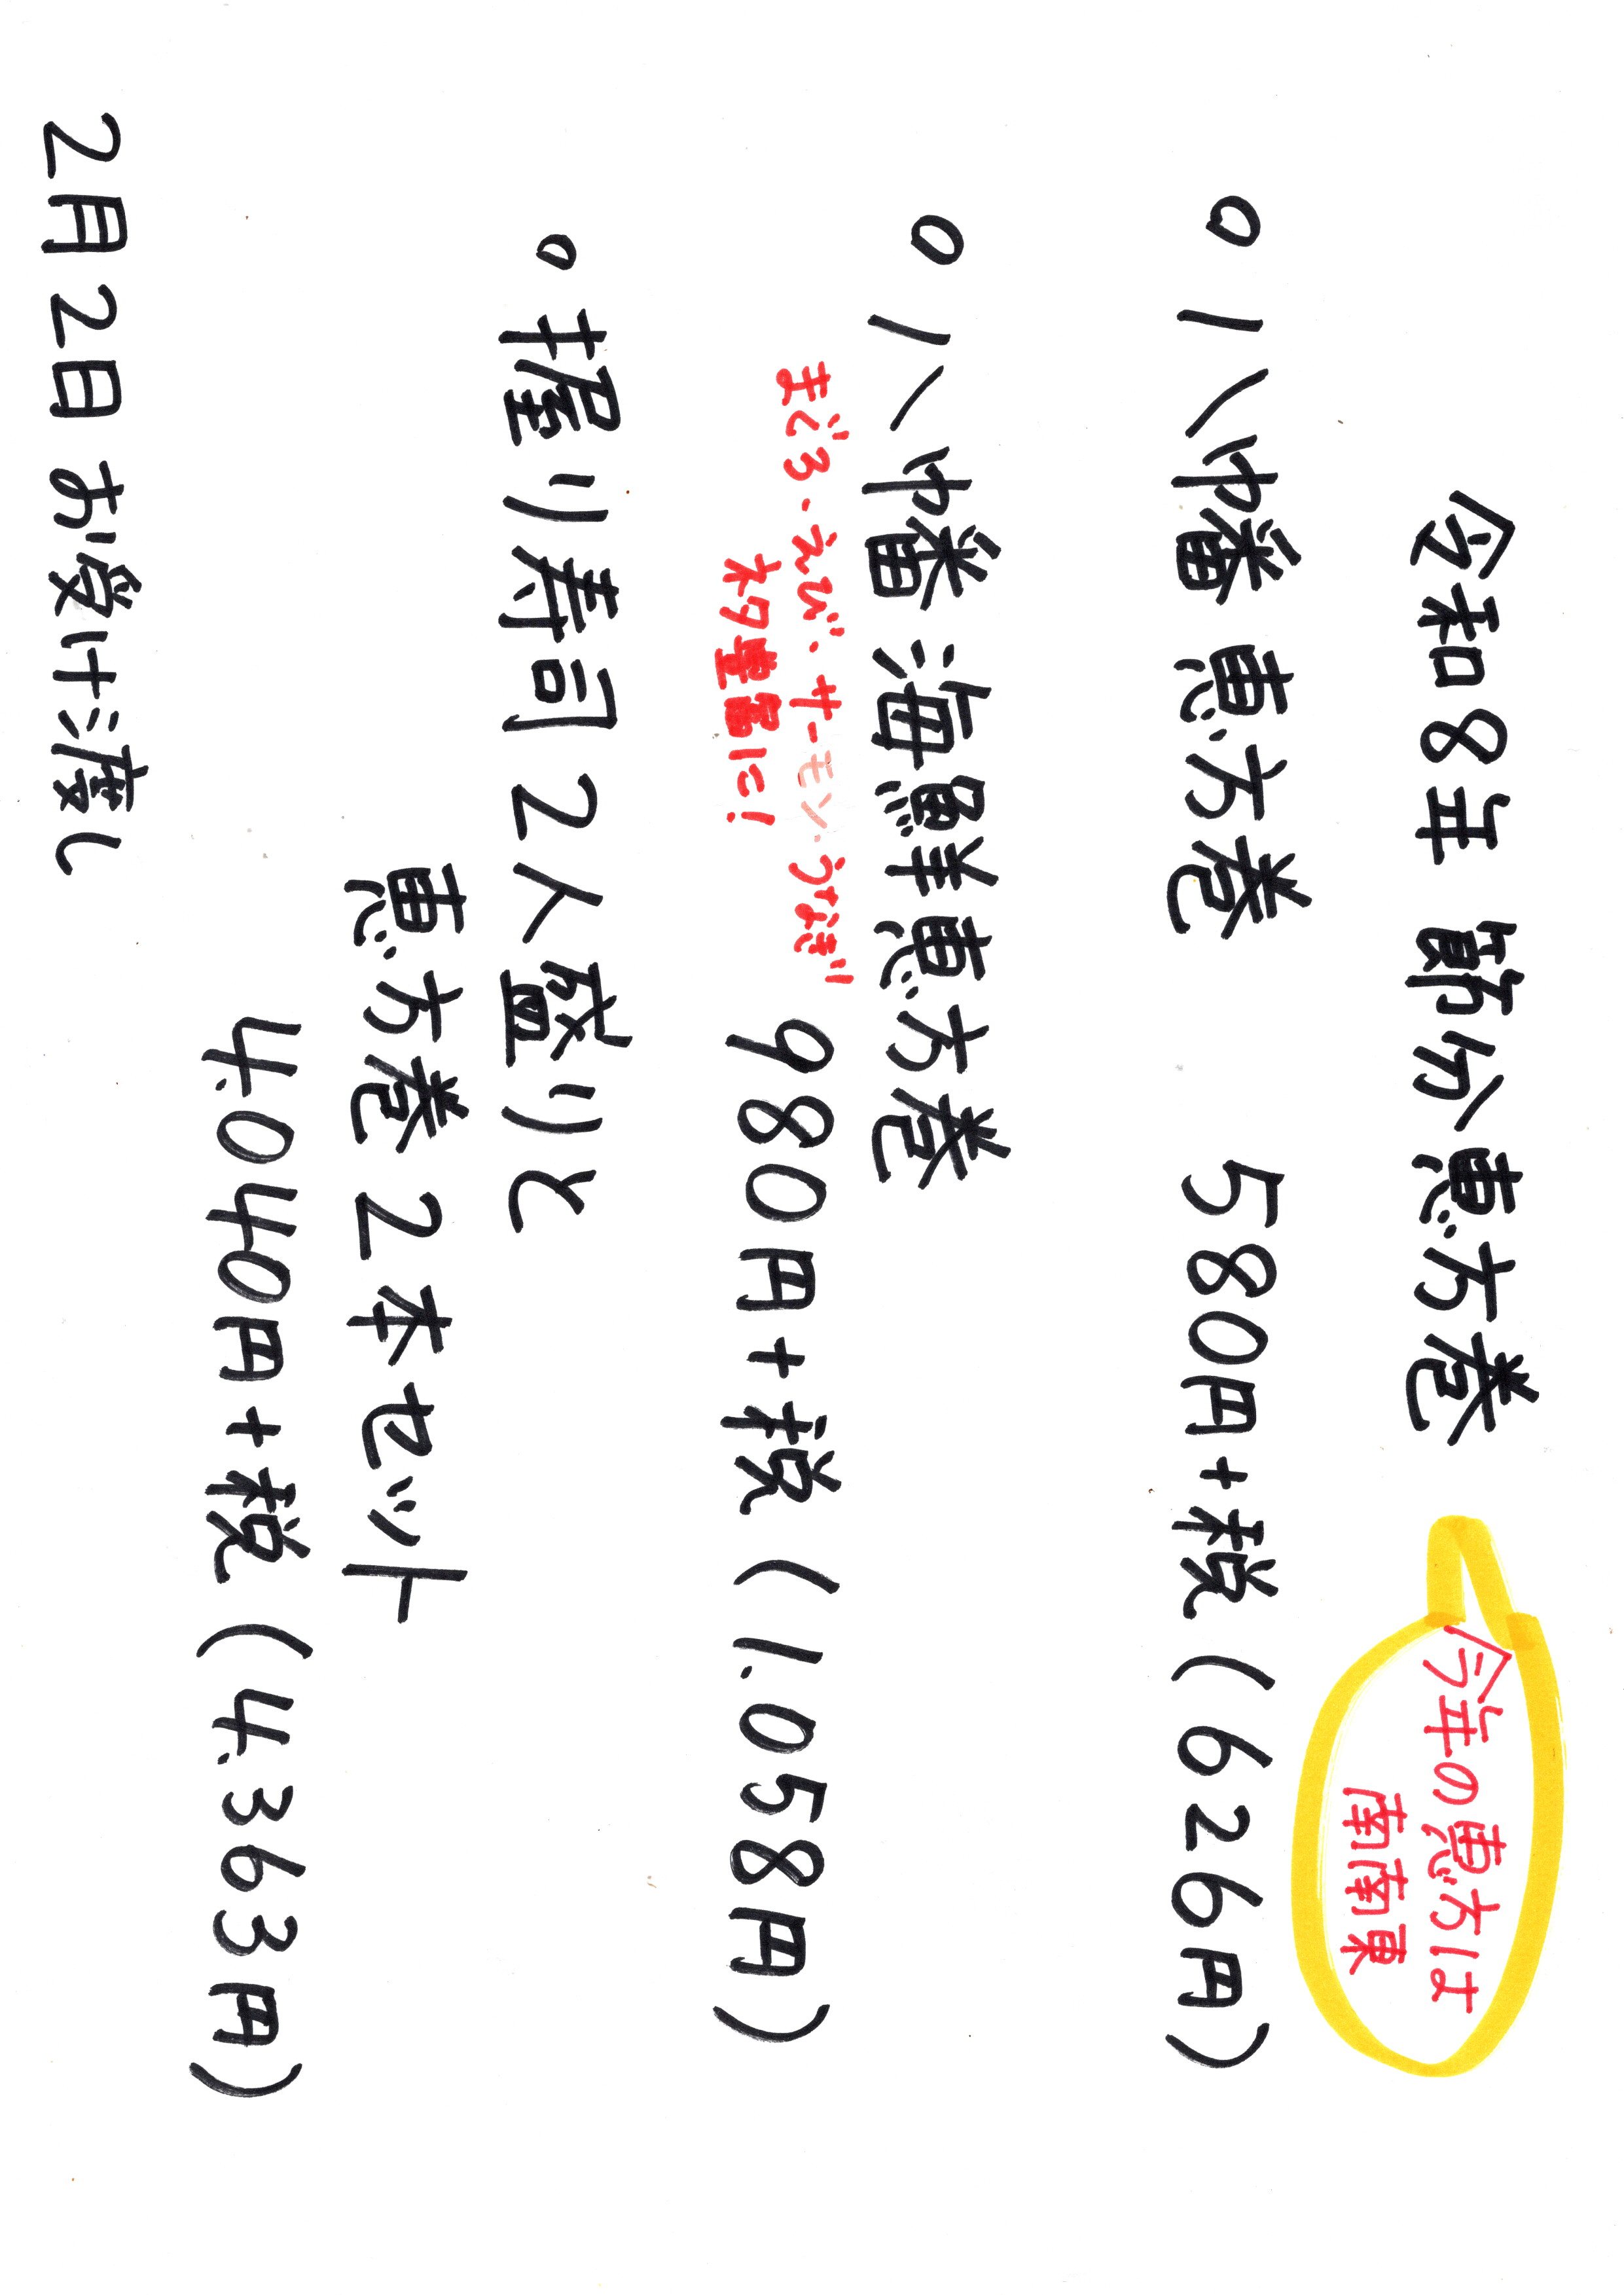 令和8年 節分恵方巻
今年の恵方は
南南東
○八幡 恵方巻 580円+税(626円)
○八幡 海鮮恵方巻
まぐろ・えび・サーモン・うなぎ
ネタ豊富に!
980円+税(1.058円)
○握り寿司2人盛りと
恵方巻2本セット
4.040円+税(4.363円)
2月2日お受け渡し